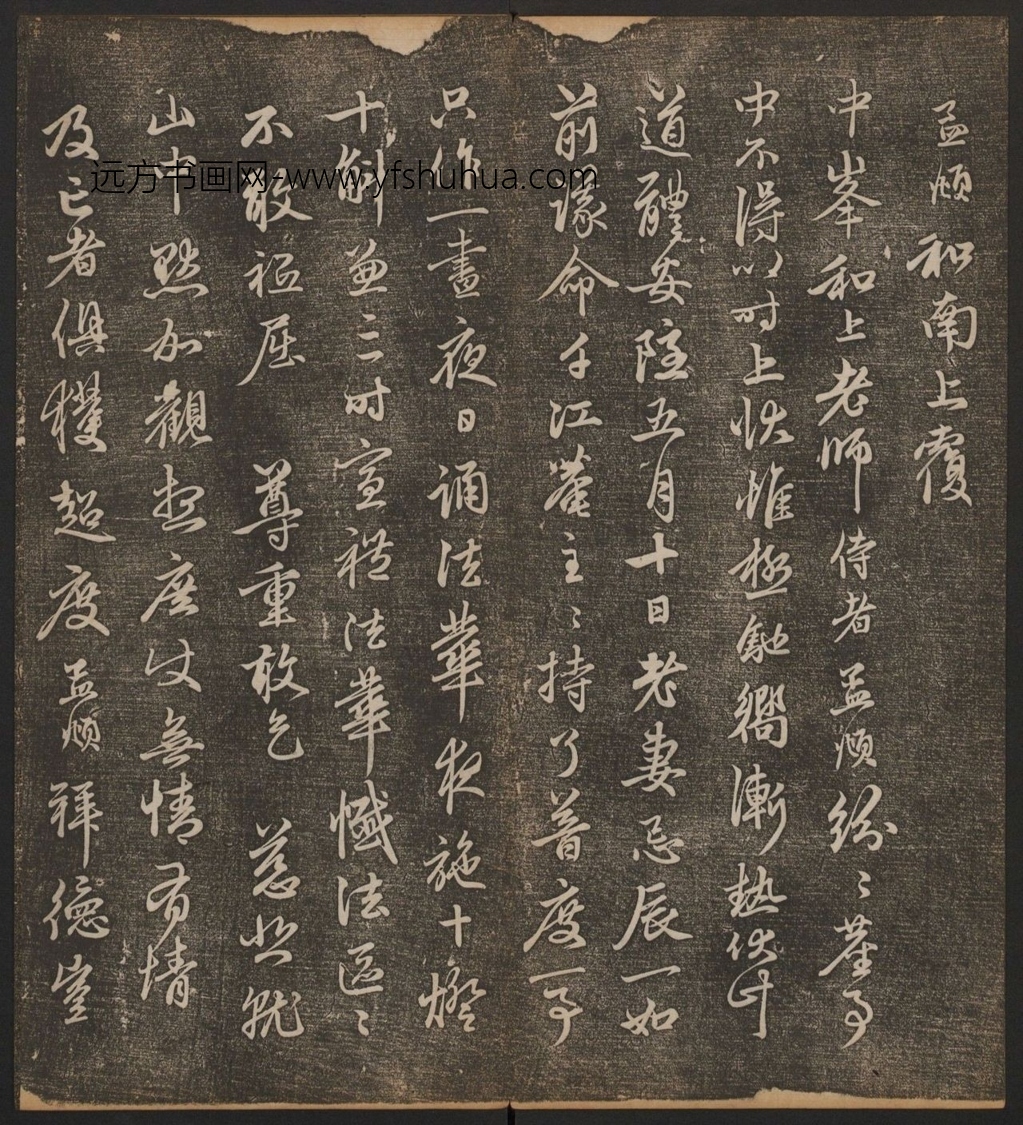 孟頫和南上覆
中峯和上老師侍者孟頫紛〻塵事
中不得以时上状惟極馳嚮漸热伏计
道體安隱五月十日老妻忌辰一如
前緣命千江菴主〻持了普度一事
只作一晝夜日誦法華夜施十燈
十斛並三时宣禮法華懺法區〻
不敢禔屈 尊重敢乞 慈悲就
山中默加觀想庶仗無情有情
及亡者俱獲超度孟頫拜德豈
远方书画网-www.yfshuhua.com